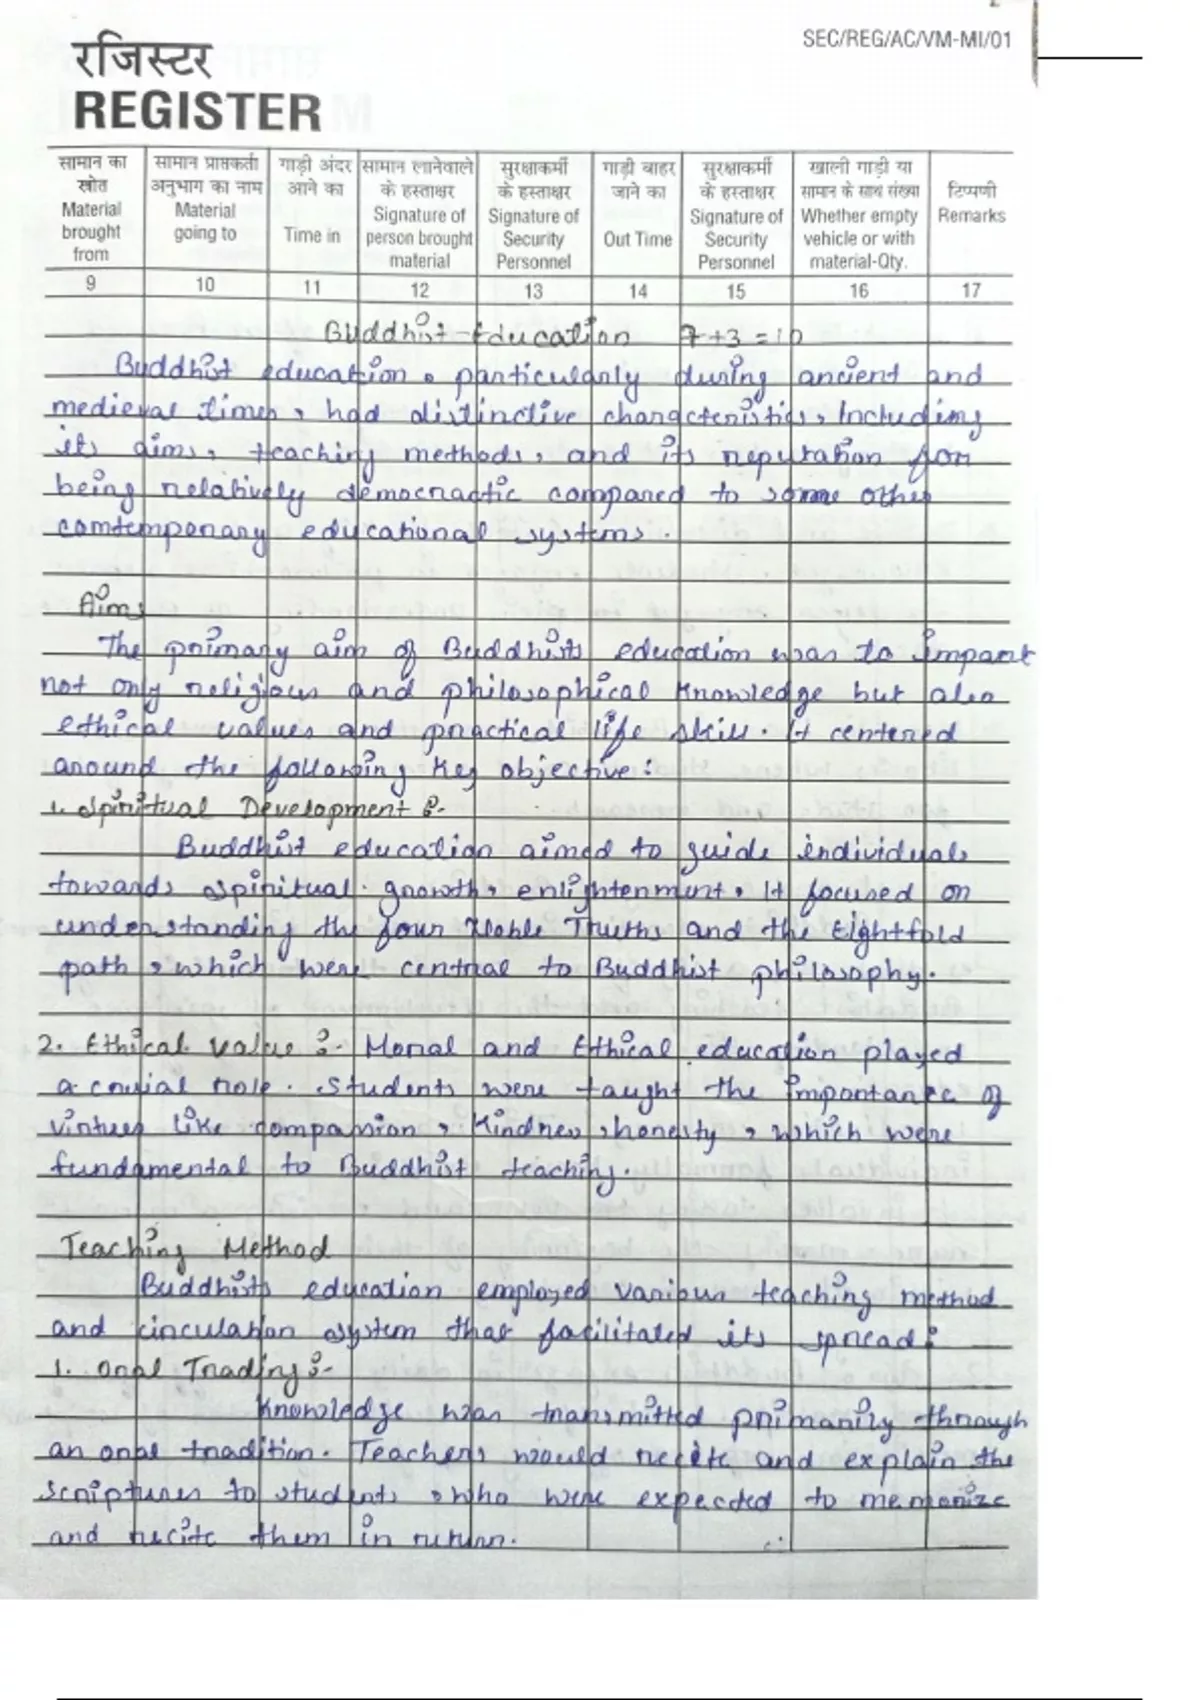 SEC/REG/AC/VM-MI/01
रजिस्टर
REGISTER
सामान का स्रोत Material brought from
सामान प्राप्तकर्ता अनुभाग का नाम Material going to
गाड़ी अंदर आने का Time in
सामान लानेवाले के हस्ताक्षर Signature of person brought material
सुरक्षाकर्मी के हस्ताक्षर Signature of Security Personnel
गाड़ी बाहर जाने का Out Time
सुरक्षाकर्मी के हस्ताक्षर Signature of Security Personnel
खाली गाड़ी या सामान के साथ संख्या Whether empty vehicle or with material-Qty.
टिप्पणी Remarks
9 10 11 12 13 14 15 16 17
Buddhist Education 7+3=10
Buddhist education, particularly during ancient and
medieval times, had distinctive characteristics, Including
its aims, teaching methods, and its reputation for
being relatively democractic compared to some other
comtemporary educational systems.
Aims
The primary aim of Buddhists education was to impart
not only religious and philosophical Knowledge but also
ethical values and practical life skill. It centered
around the following key objective:
1. Spiritual Development :-
Buddhist education aimed to guide individuals
towards spiritual growth, enlightenment. It focused on
understanding the four Noble Truths and the Eightfold
path, which were central to Buddhist philosophy.
2. Ethical value :- Moral and Ethical education played
a crucial role. Students were taught the importance of
virtues like compassion, Kindnes, honesty, which were
fundamental to Buddhist teaching.
Teaching Method
Buddhists education employed various teaching method
and circulation system that facilitated its spread:
1. Oral Trading:-
Knowledge was transmitted primarily through
an oral tradition. Teachers would recite and explain the
scriptures to students, who were expected to memorize
and recite them in return.